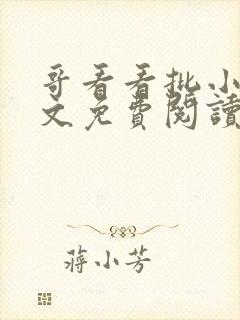 哥看看批小
文免費閱讀
蔣小芳